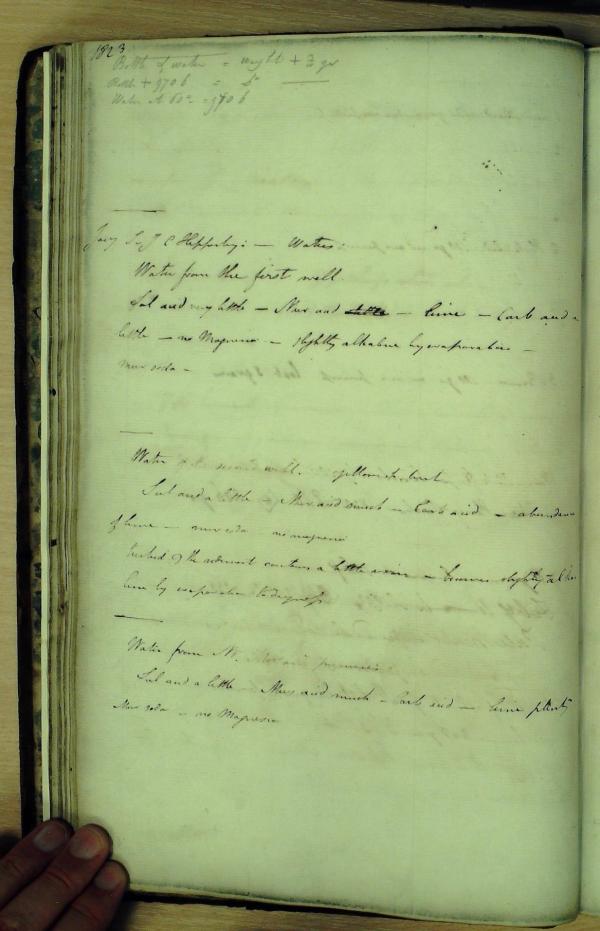 1823
Bottle of water = weight + 3 gr
Bottle + 970 6 = Do
Water at 60° = 970 6
Sir J C Hippisley: — Waters:
Water from the first well
Sul acid very little — Mur acid little — lime — Carb acid a
little — no Magnesia — slightly alkaline by evaporation —
mur soda —
Water second well. yellowish
Sul acid a little — Mur acid much — Carb acid — abundance
of lime — mur soda no magnesia
the sediment contains a little — becomes slightly alka
line by evaporation to dryness
Water from
Sul acid a little — Mur acid much — Carb acid — lime plenty
Mur soda — no Magnesia